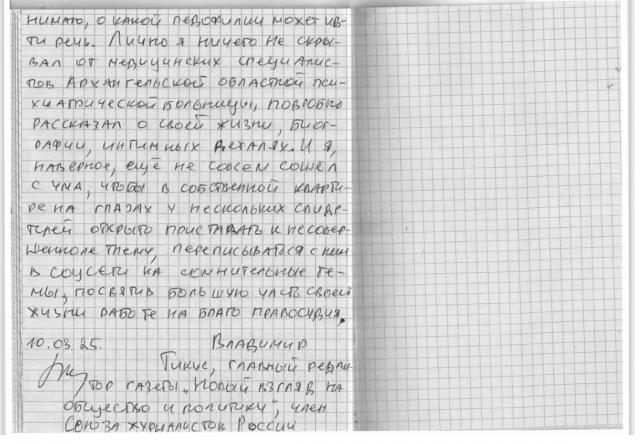 нимаю, о какой педофилии может ид-
ти речь. Лично я ничего не скры-
вал от медицинских специалис-
тов Архангельской областной пси-
хиатрической больницы, подробно
рассказал о своей жизни, биог-
рафии, интимных деталях. И я,
наверное, ещё не совсем сошёл
с ума, чтобы в собственной кварти-
ре на глазах у нескольких свиде-
телей открыто приставать к несовер-
шеннолетнему, переписываться с ним
в соцсети на сомнительные те-
мы, посвятив большую часть своей
жизни работе на благо правосудия.
10.03.25. Владимир
Тикус, главный редак-
тор газеты „Новый взгляд на
общество и политику", член
Союза журналистов России